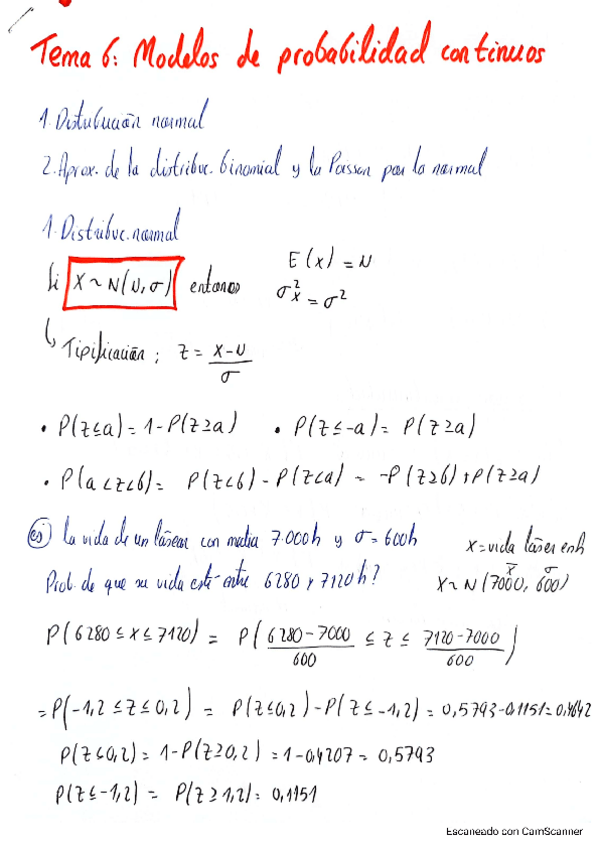 Tema 6: Modelos de probabilidad continuos
1. Distribución normal
2. Aprox. de la distribuc. binomial y la Poisson por la normal
1. Distribuc. normal
Si X ~ N(μ, σ) entonces E(x) = μ
σ²x = σ²
↳ Tipificación: z = x-μ / σ
• P(z≤a) = 1-P(z≥a) • P(z≤-a) = P(z≥a)
• P(a<z<b) = P(z<b) - P(z<a) = -P(z≥b) + P(z≥a)
ej la vida de un láser con media 7.000h y σ = 600h
X = vida láser en h
Prob. de que su vida esté entre 6280 y 7120h? X ~ N(7000, 600)
x̄ σ
P(6280 ≤ x ≤ 7120) = P( 6280-7000 / 600 ≤ z ≤ 7120-7000 / 600 )
= P(-1,2 ≤ z ≤ 0,2) = P(z≤0,2) - P(z≤-1,2) = 0,5793-0,1151=0,4642
P(z≤0,2) = 1-P(z≥0,2) = 1-0,4207 = 0,5793
P(z≤-1,2) = P(z≥1,2) = 0,1151
Escaneado con CamScanner